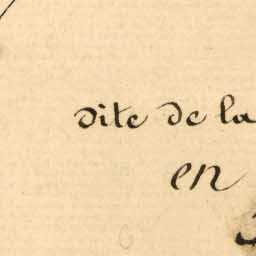 dite de la
en